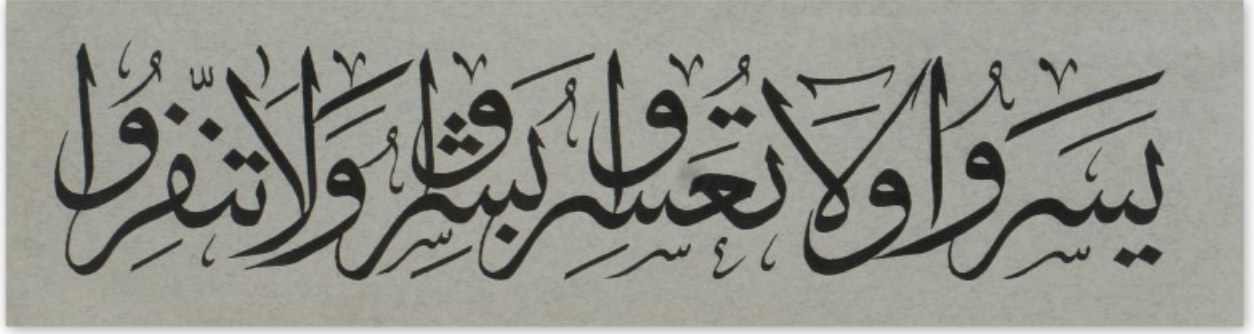 يسروا ولا تعسروا بشروا ولا تنفروا